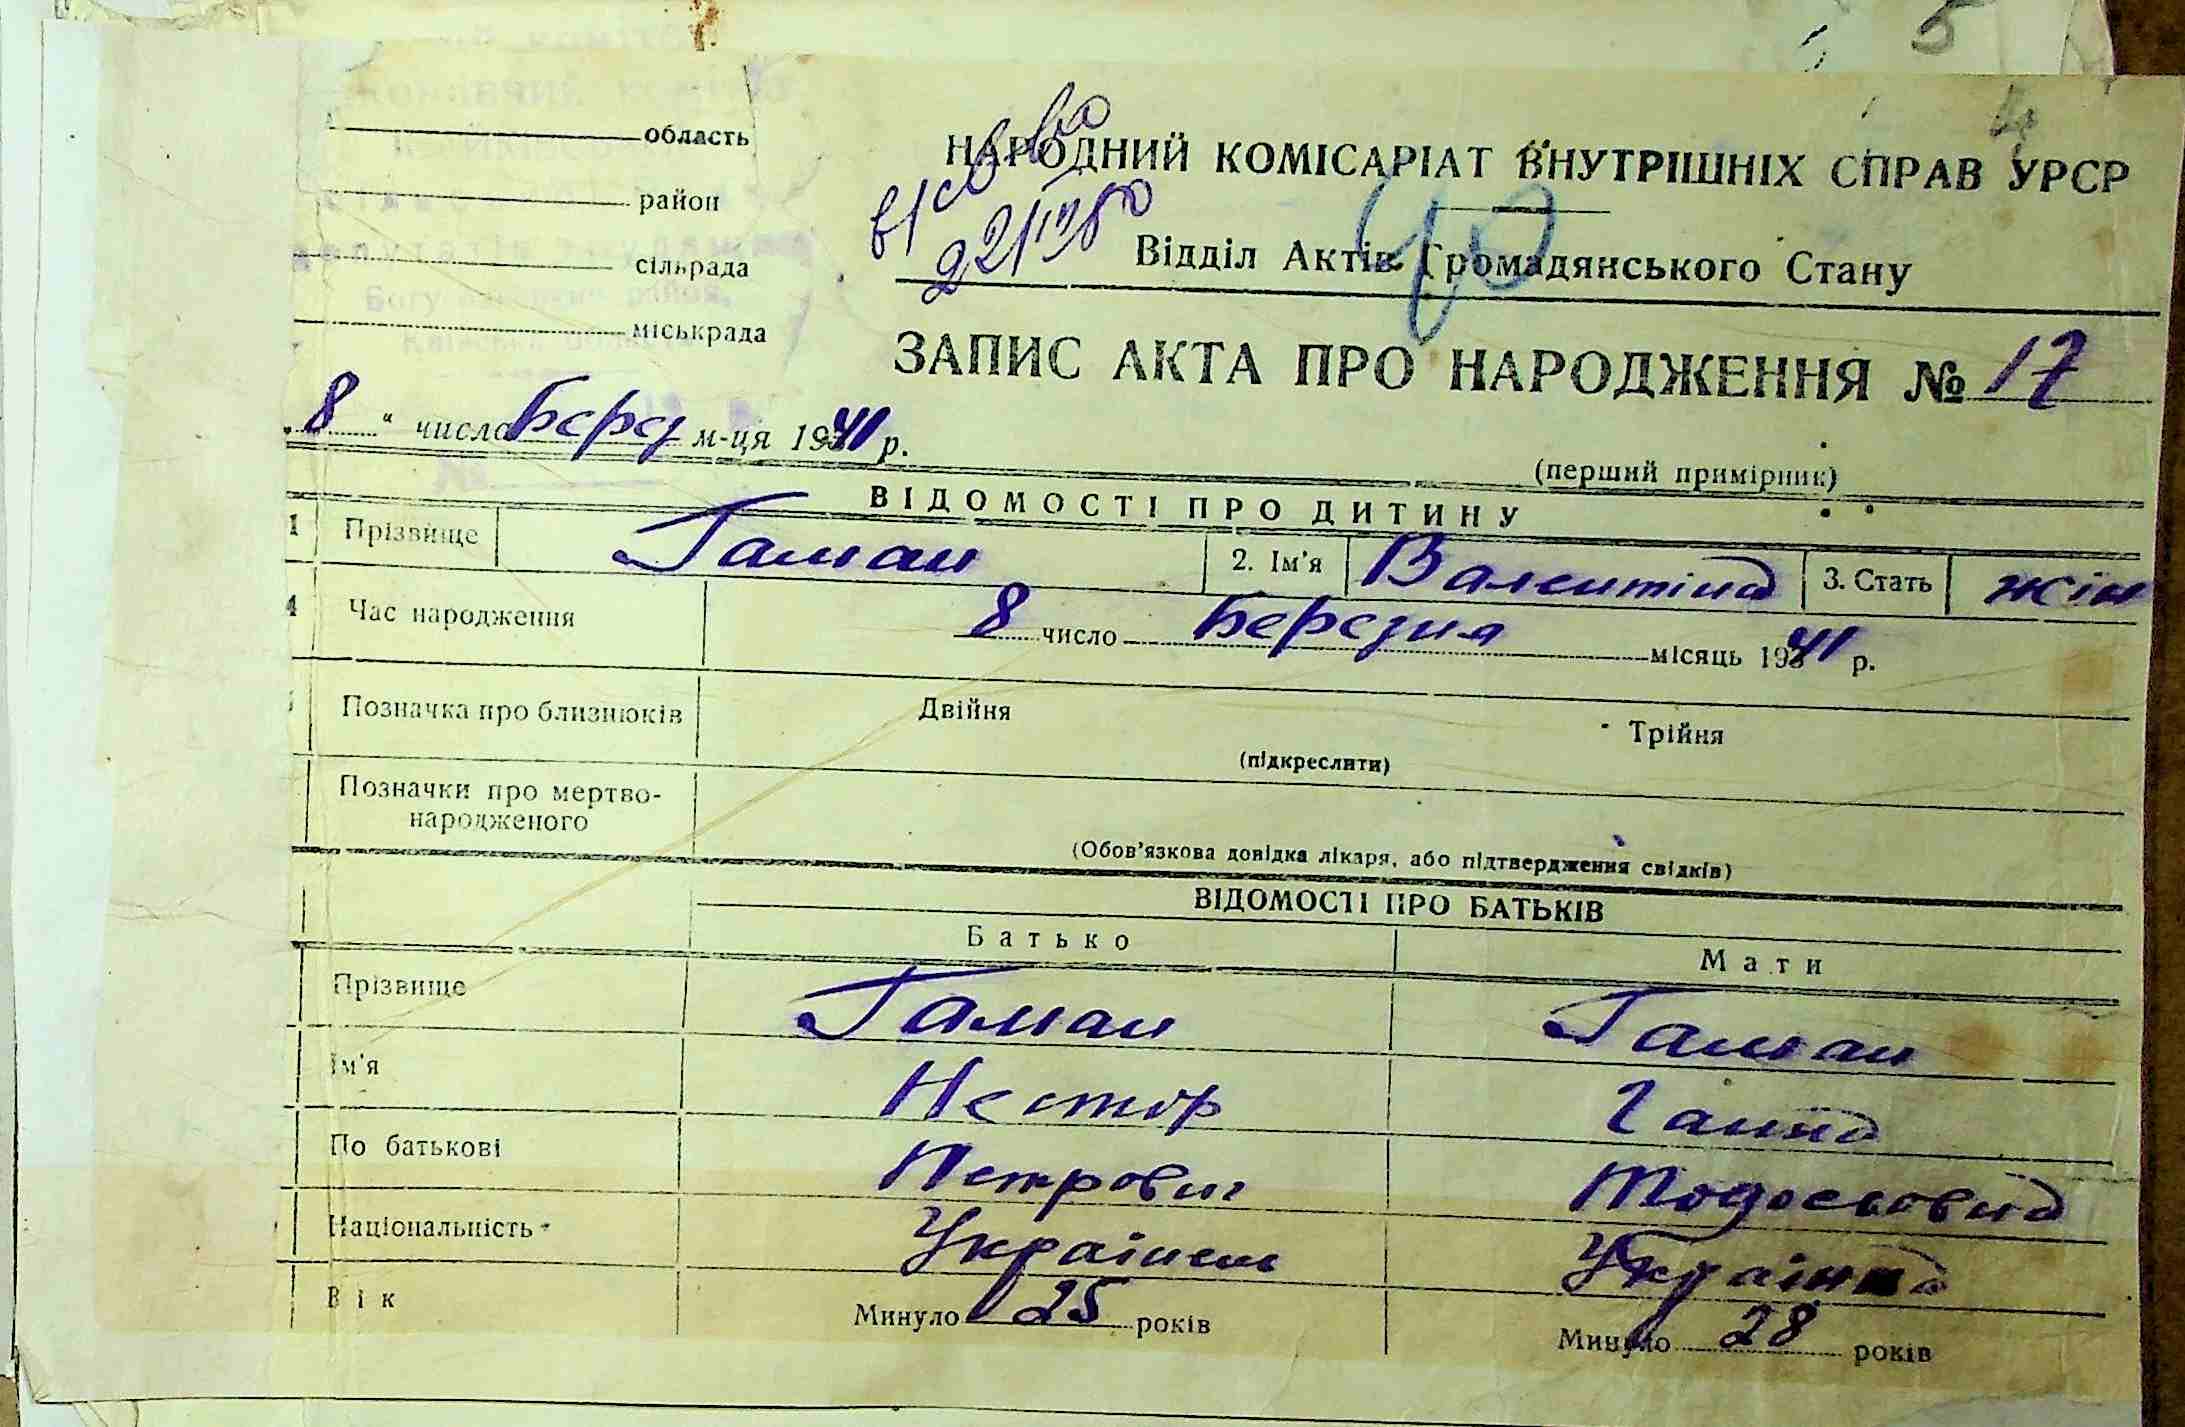 5
4
область
район
сільрада
міськрада
НАРОДНИЙ КОМІСАРІАТ ВНУТРІШНІХ СПРАВ УРСР
40
Відділ Актів Громадянського Стану
ЗАПИС АКТА ПРО НАРОДЖЕННЯ № 17
8 " числа Берез м-ця 1941 р.
(перший примірник)
ВІДОМОСТІ ПРО ДИТИНУ
1 Прізвище Гаман 2. Ім'я Валентина 3. Стать жін
4 Час народження 8 число Березня місяць 1941 р.
Позначка про близнюків Двійня Трійня
(підкреслити)
Позначки про мертво-
народженого
(Обов'язкова довідка лікаря, або підтвердження свідків)
ВІДОМОСТІ ПРО БАТЬКІВ
Батько Мати
Прізвище Гаман Гаман
Ім'я Нестор Ганна
По батькові Петрович Тодосьовна
Національність Українец Українка
Вік Минуло 25 років Минуло 28 років